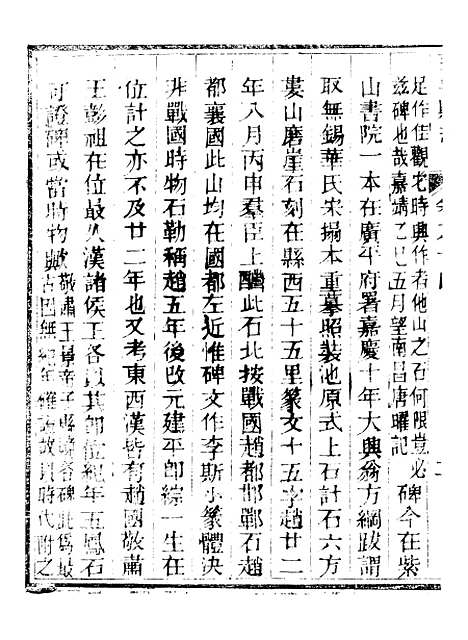 足作佳觀老時與作者他山之石何限豈必 碑今在紫
茲碑也哉嘉靖乙巳五月望南昌唐曜記
山書院一本在廣平府署嘉慶十年大興翁方綱跋謂
取無錫華氏宋搨本重摹照裝池原式上石計石六方
婁山磨崖石刻在縣西五十五里篆文十五字趙廿二
年八月丙申羣臣上醻此石北按戰國趙都邯鄲石趙
都襄國此山均在國都左近惟碑文作李斯小篆體決
非戰國時物石勒稱趙五年後改元建平即綜一生在
位計之亦不及廿二年也又考東西漢皆有趙國敬肅
王彭祖在位最久漢諸侯王各以其即位紀年五鳳石
可證碑或當時物歟敬肅王
古囙無紀年 故以時代附之